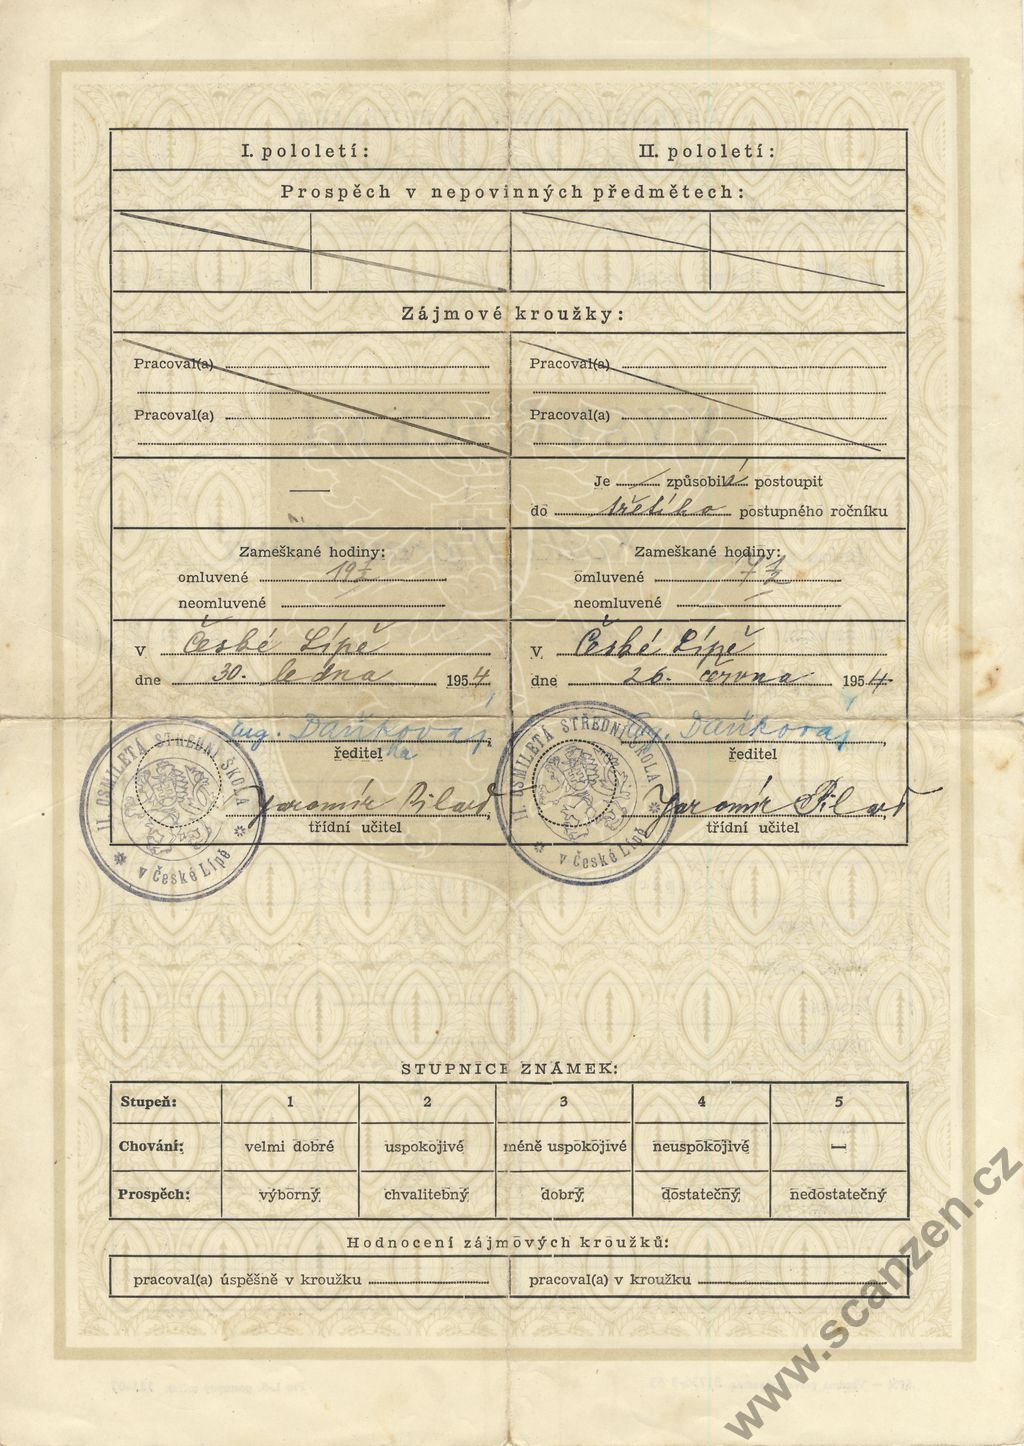 I. pololetí: II. pololetí:
Prospěch v nepovinných předmětech:
Zájmové kroužky:
Pracoval(a) Pracoval(a)
Pracoval(a) Pracoval(a)
— Je způsobilá postoupit
do třetího postupného ročníku
Zameškané hodiny: Zameškané hodiny:
omluvené omluvené
neomluvené — neomluvené —
V České Lípě V České Lípě
dne 30. ledna 1954 dne 26. června 1954
ing. Daňková ing. Daňková
ředitelka ředitel
Jaromír Pilař Jaromír Pilař
třídní učitel třídní učitel
II. OSMILETÁ STŘEDNÍ ŠKOLA v České Lípě
II. OSMILETÁ STŘEDNÍ ŠKOLA v České Lípě
STUPNICE ZNÁMEK:
Stupeň: 1 2 3 4 5
Chování: velmi dobré uspokojivé méně uspokojivé neuspokojivé —
Prospěch: výborný chvalitebný dobrý dostatečný nedostatečný
Hodnocení zájmových kroužků:
pracoval(a) úspěšně v kroužku pracoval(a) v kroužku
www.scanzen.cz